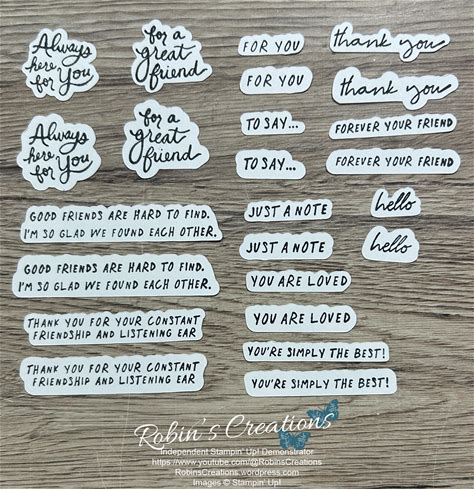 Always
here
for You
for a
great
friend
Always
here
for You
for a
great
friend
GOOD FRIENDS ARE HARD TO FIND.
I'M SO GLAD WE FOUND EACH OTHER.
GOOD FRIENDS ARE HARD TO FIND.
I'M SO GLAD WE FOUND EACH OTHER.
THANK YOU FOR YOUR CONSTANT
FRIENDSHIP AND LISTENING EAR
THANK YOU FOR YOUR CONSTANT
FRIENDSHIP AND LISTENING EAR
FOR YOU
thank you
FOR YOU
thank you
TO SAY...
FOREVER YOUR FRIEND
TO SAY...
FOREVER YOUR FRIEND
JUST A NOTE
hello
JUST A NOTE
hello
YOU ARE LOVED
YOU ARE LOVED
YOU'RE SIMPLY THE BEST!
YOU'RE SIMPLY THE BEST!
Robin's Creations
Independent Stampin' Up! Demonstrator
https://www.youtube.com/@RobinsCreations
RobinsCreations.wordpress.com
Images © Stampin' Up!